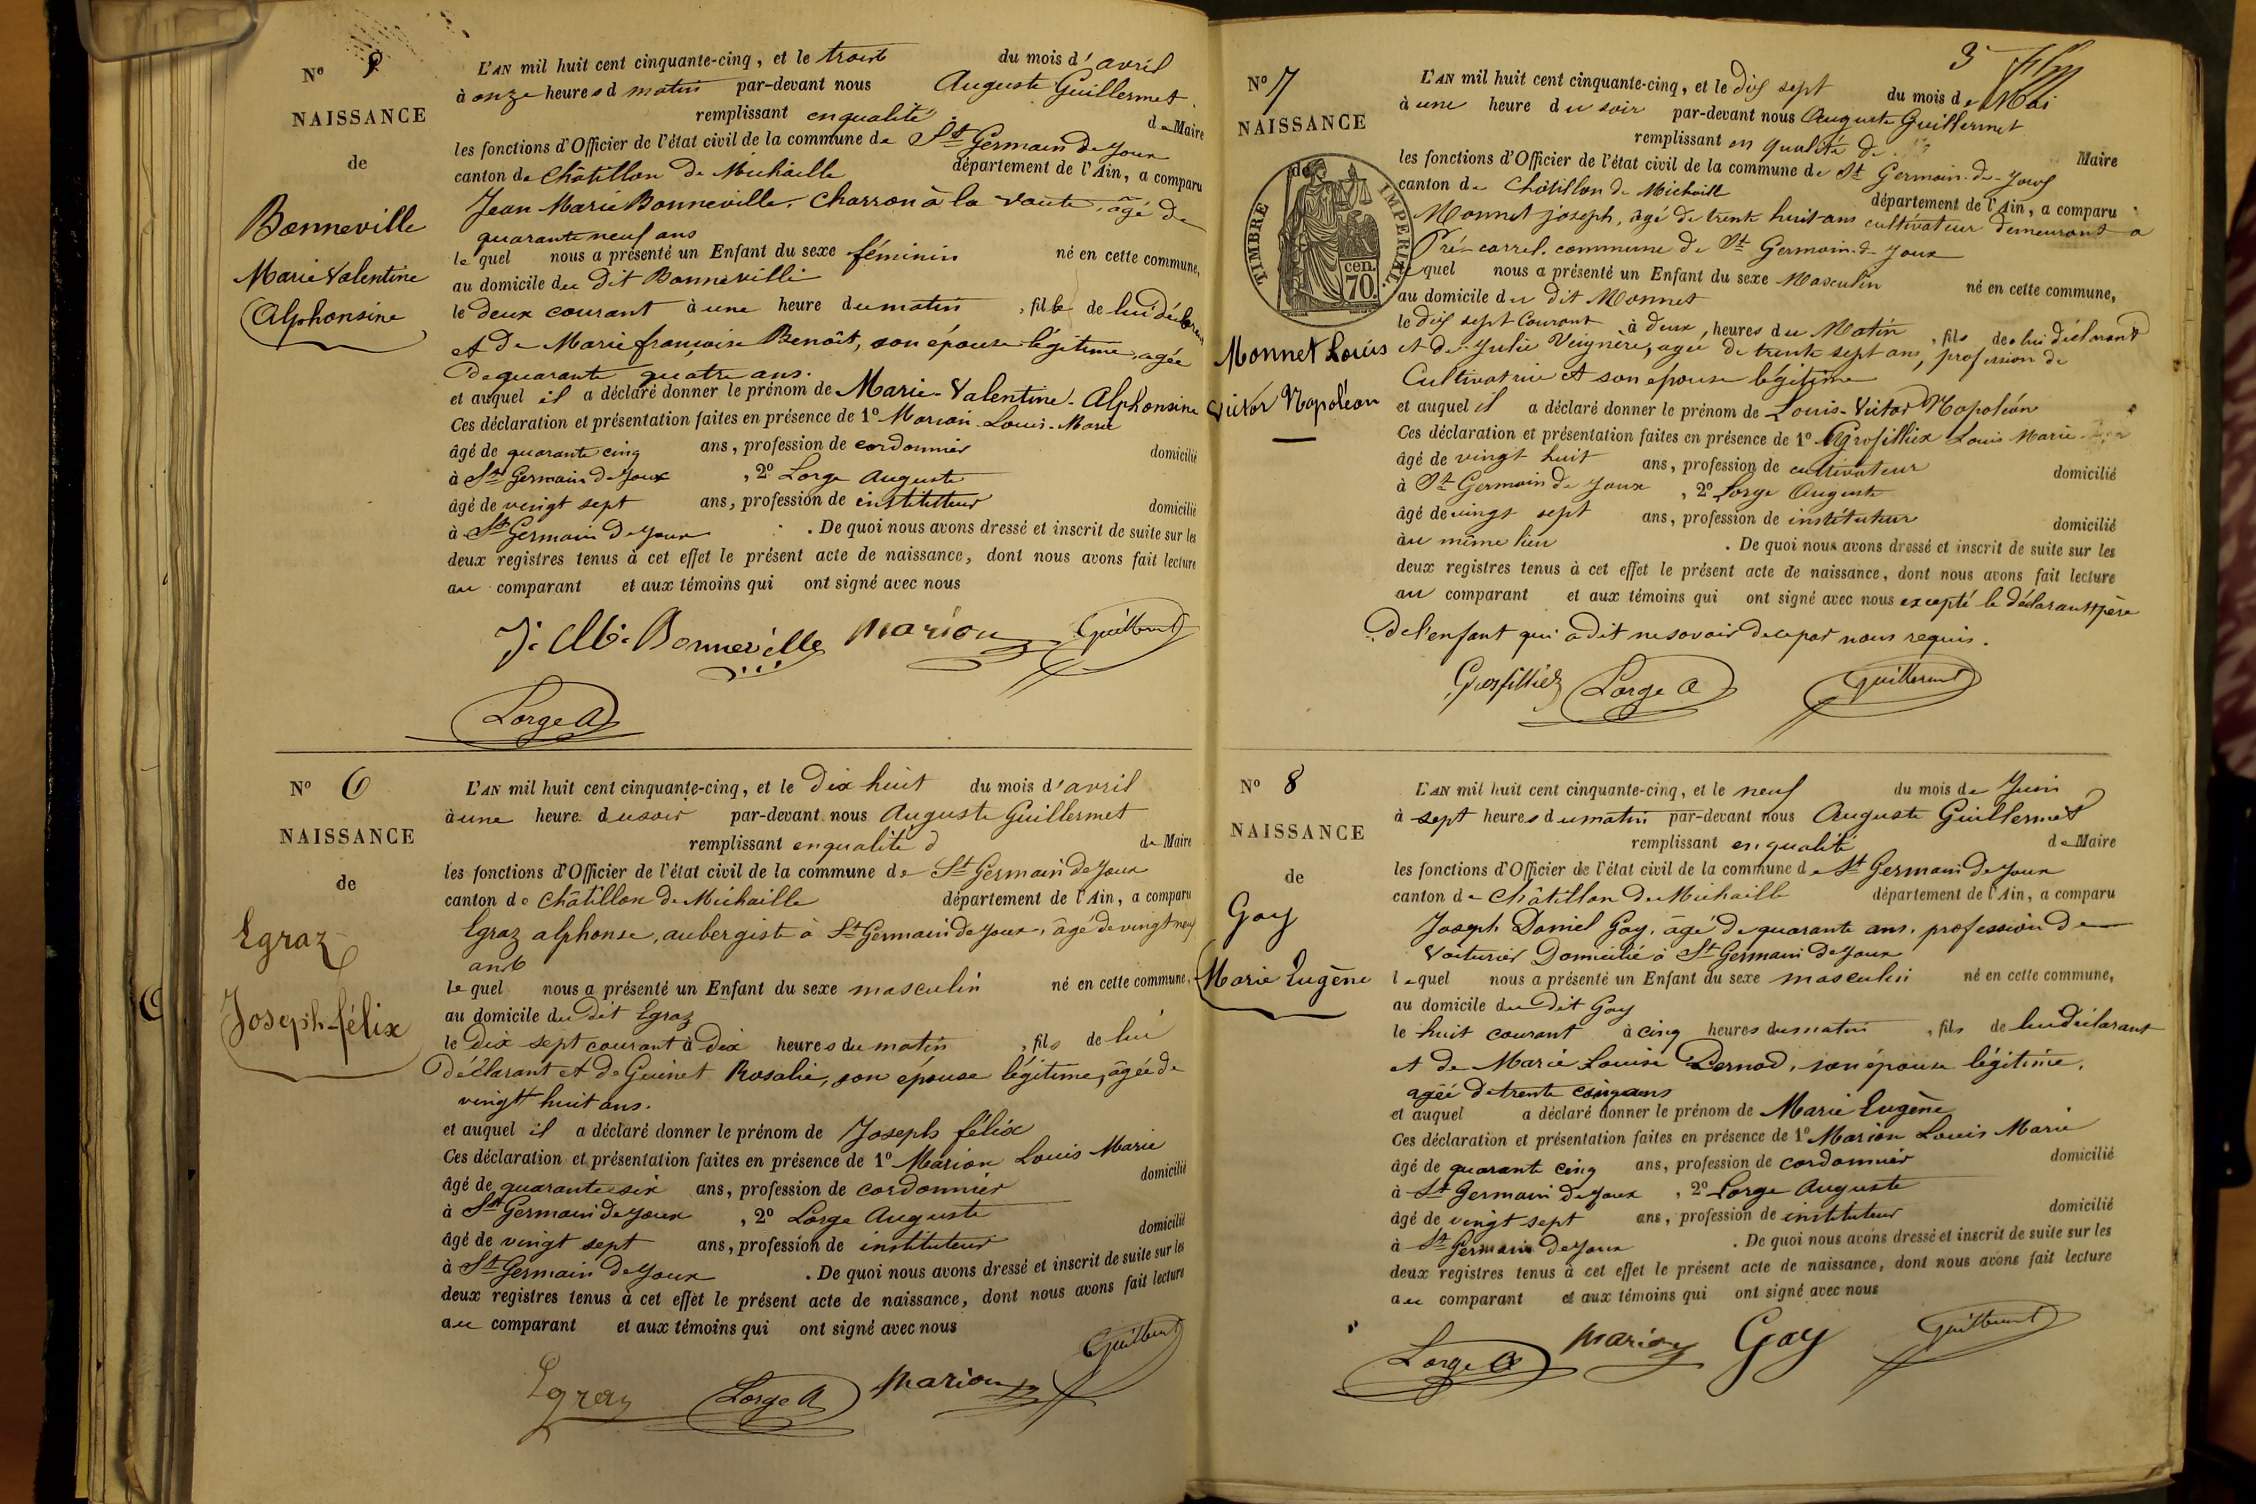 N° 5
NAISSANCE
de
Bonneville
Marie Valentine
Alphonsine
L'AN mil huit cent cinquante-cinq, et le trois du mois d'avril
à onze heures d matin par-devant nous Auguste Guillermet
remplissant en qualité de Maire
les fonctions d'Officier de l'état civil de la commune de St Germain de Joux
canton de Châtillon de Michaille département de l'Ain, a comparu
Jean Marie Bonneville, Charron à la voute, âgé de
quarante neuf ans
lequel nous a présenté un Enfant du sexe féminin né en cette commune,
au domicile du dit Bonneville
le deux courant à une heure du matin, fille de lui déclarant
et de Marie françoise Benoît, son épouse légitime, agée
de quarante quatre ans.
et auquel il a déclaré donner le prénom de Marie-Valentine-Alphonsine
Ces déclaration et présentation faites en présence de 1° Marion Louis-Marie
âgé de quarante cinq ans, profession de cordonnier domicilié
à St Germain de Joux, 2° Lorge Auguste
âgé de vingt sept ans, profession de instituteur domicilié
à St Germain de Joux. De quoi nous avons dressé et inscrit de suite sur les
deux registres tenus à cet effet le présent acte de naissance, dont nous avons fait lecture
au comparant et aux témoins qui ont signé avec nous
J. M. Bonneville Marion Guillermet
Lorge A
N° 6
NAISSANCE
de
Egraz
Joseph-félix
L'AN mil huit cent cinquante-cinq, et le Dix huit du mois d'avril
à une heure du soir par-devant nous Auguste Guillermet
remplissant en qualité d de Maire
les fonctions d'Officier de l'état civil de la commune de St Germain de Joux
canton de Châtillon de Michaille département de l'Ain, a comparu
Egraz alphonse, aubergiste à St Germain de Joux, âgé de vingt neuf
ans
lequel nous a présenté un Enfant du sexe masculin né en cette commune,
au domicile du dit Egraz
le Dix sept courant à dix heures du matin, fils de lui
Déclarant et de Guinet Rosalie, son épouse légitime, âgée de
vingt huit ans.
et auquel il a déclaré donner le prénom de Joseph félix
Ces déclaration et présentation faites en présence de 1° Marion Louis Marie
âgé de quarante six ans, profession de cordonnier domicilié
à St Germain de Joux, 2° Lorge Auguste
âgé de vingt sept ans, profession de instituteur domicilié
à St Germain de Joux. De quoi nous avons dressé et inscrit de suite sur les
deux registres tenus à cet effet le présent acte de naissance, dont nous avons fait lecture
au comparant et aux témoins qui ont signé avec nous
Egraz Lorge A Marion Guillermet
3
N° 7
NAISSANCE
de
TIMBRE IMPERIAL.
70 cen.
Monnet Louis
Victor Napoléon
L'AN mil huit cent cinquante-cinq, et le dix sept du mois de Mai
à une heure du soir par-devant nous Auguste Guillermet
remplissant en qualité de Maire
les fonctions d'Officier de l'état civil de la commune de St Germain-de-Joux
canton de Châtillon de Michaille département de l'Ain, a comparu
Monnet joseph, âgé de trente huit ans cultivateur demeurant a
Pré-carrel, commune de St Germain-de-Joux
lequel nous a présenté un Enfant du sexe Masculin né en cette commune,
au domicile du dit Monnet
le dix sept Courant à deux, heures du Matin, fils de lui déclarant
et de Julie Vuynere, agée de trente sept ans, profession de
Cultivatrice et son épouse légitime
et auquel il a déclaré donner le prénom de Louis-Victor Napoléon
Ces déclaration et présentation faites en présence de 1° Grosfilliex Louis Marie
âgé de vingt huit ans, profession de cultivateur domicilié
à St Germain de Joux, 2° Lorge Auguste
âgé de vingt sept ans, profession de instituteur domicilié
au même lieu. De quoi nous avons dressé et inscrit de suite sur les
deux registres tenus à cet effet le présent acte de naissance, dont nous avons fait lecture
au comparant et aux témoins qui ont signé avec nous excepté le déclarant père
De l'enfant qui a dit ne savoir de ce par nous requis.
Grosfilliex Lorge A Guillermet
N° 8
NAISSANCE
de
Gay
Marie Eugène
L'AN mil huit cent cinquante-cinq, et le neuf du mois de Juin
à sept heures du matin par-devant nous Auguste Guillermet
remplissant en qualité de Maire
les fonctions d'Officier de l'état civil de la commune de St Germain de Joux
canton de Châtillon de Michaille département de l'Ain, a comparu
Joseph Daniel Gay, âgé de quarante ans, profession de
Voiturier Domicilié à St Germain de Joux
lequel nous a présenté un Enfant du sexe masculin né en cette commune,
au domicile du dit Gay
le huit courant à cinq heures du matin, fils de lui déclarant
et de Marie Louise Pernod, son épouse légitime,
agée de trente cinq ans
et auquel a déclaré donner le prénom de Marie Eugène
Ces déclaration et présentation faites en présence de 1° Marion Louis Marie
âgé de quarante cinq ans, profession de cordonnier domicilié
à St Germain de Joux, 2° Lorge Auguste
âgé de vingt sept ans, profession de instituteur domicilié
à St Germain de Joux. De quoi nous avons dressé et inscrit de suite sur les
deux registres tenus à cet effet le présent acte de naissance, dont nous avons fait lecture
au comparant et aux témoins qui ont signé avec nous
Lorge A Marion Gay Guillermet